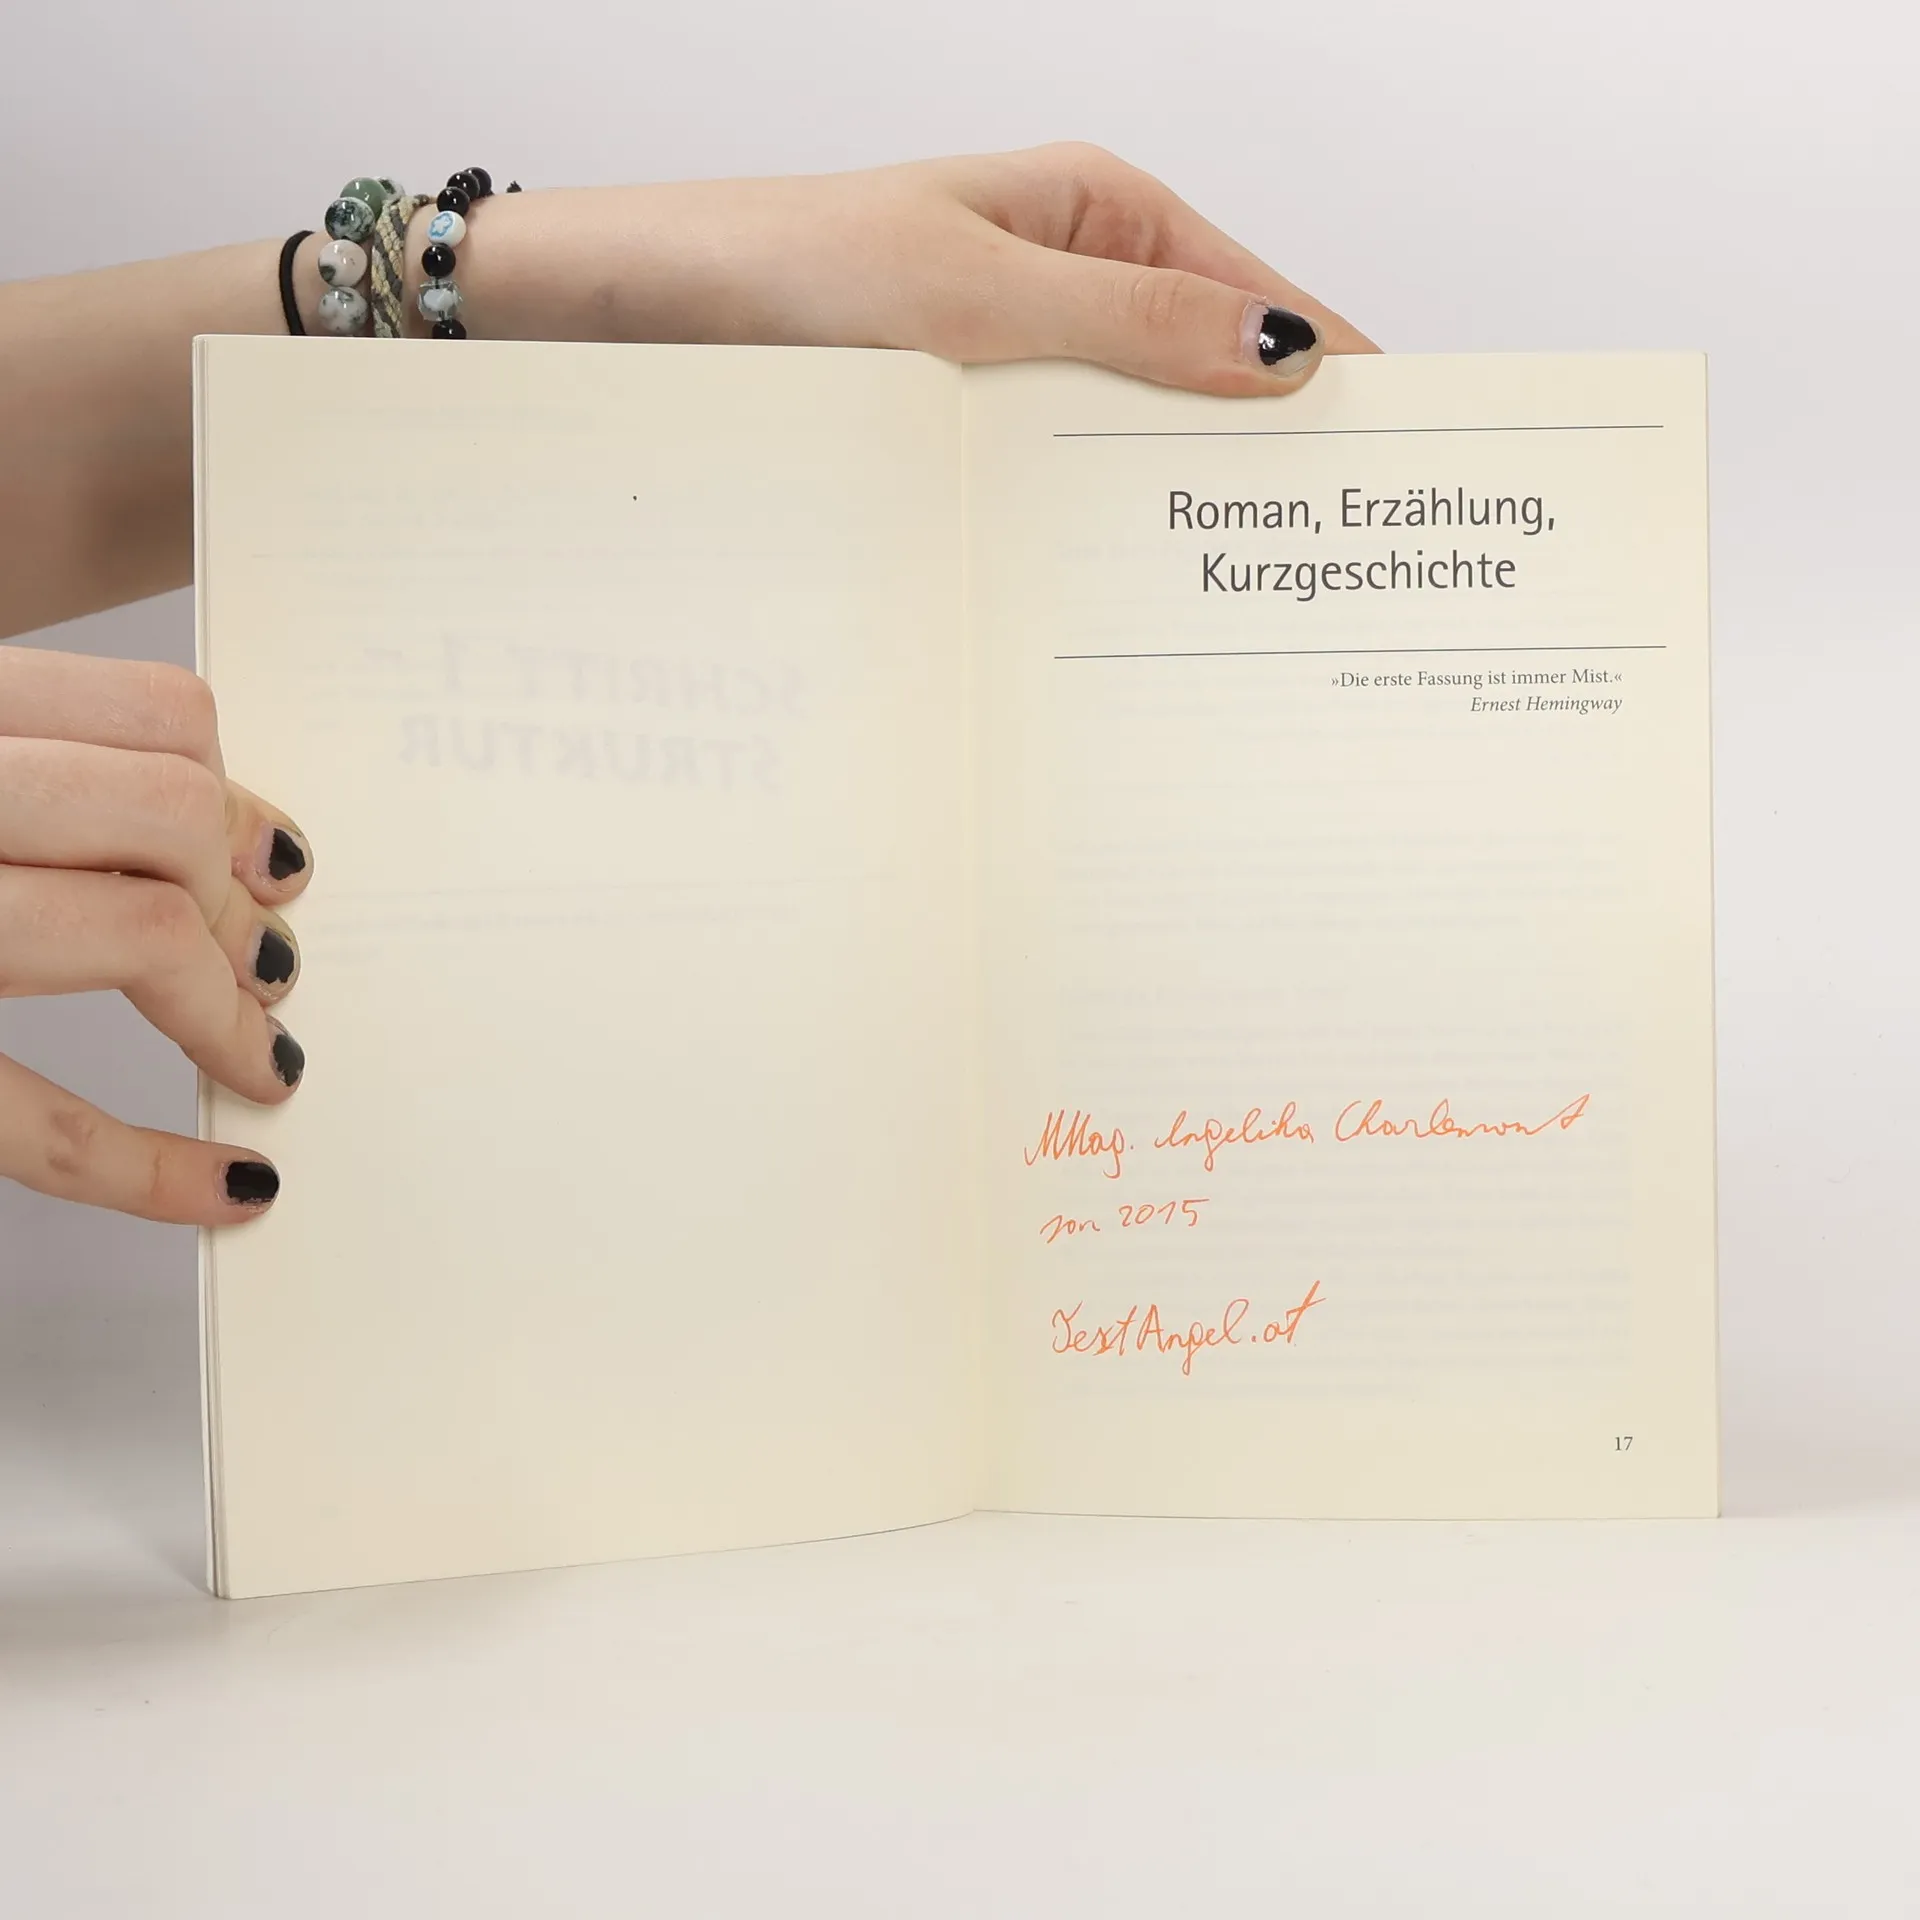 SCHRITT 1 –
STRUKTUR
Roman, Erzählung,
Kurzgeschichte
»Die erste Fassung ist immer Mist.«
Ernest Hemingway
MMag. Angelika Charlemont
2015
TextAngel.at
17